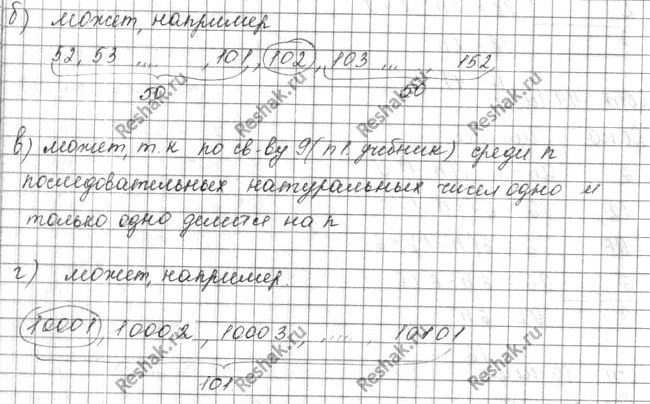 б) может, например
52, 53 .... , 101, 102, 103 ... , 152
50 50
в) может, т.к по св-ву 9 (п 1. учебник) среди n
последовательных натуральных чисел одно и
только одно делится на n
г) может, например.
10001, 10002, 10003, ..... , 10101
101
Reshak.ru
Reshak.ru
Reshak.ru
Reshak.ru
Reshak.ru
Reshak.ru
Reshak.ru
Reshak.ru
Reshak.ru